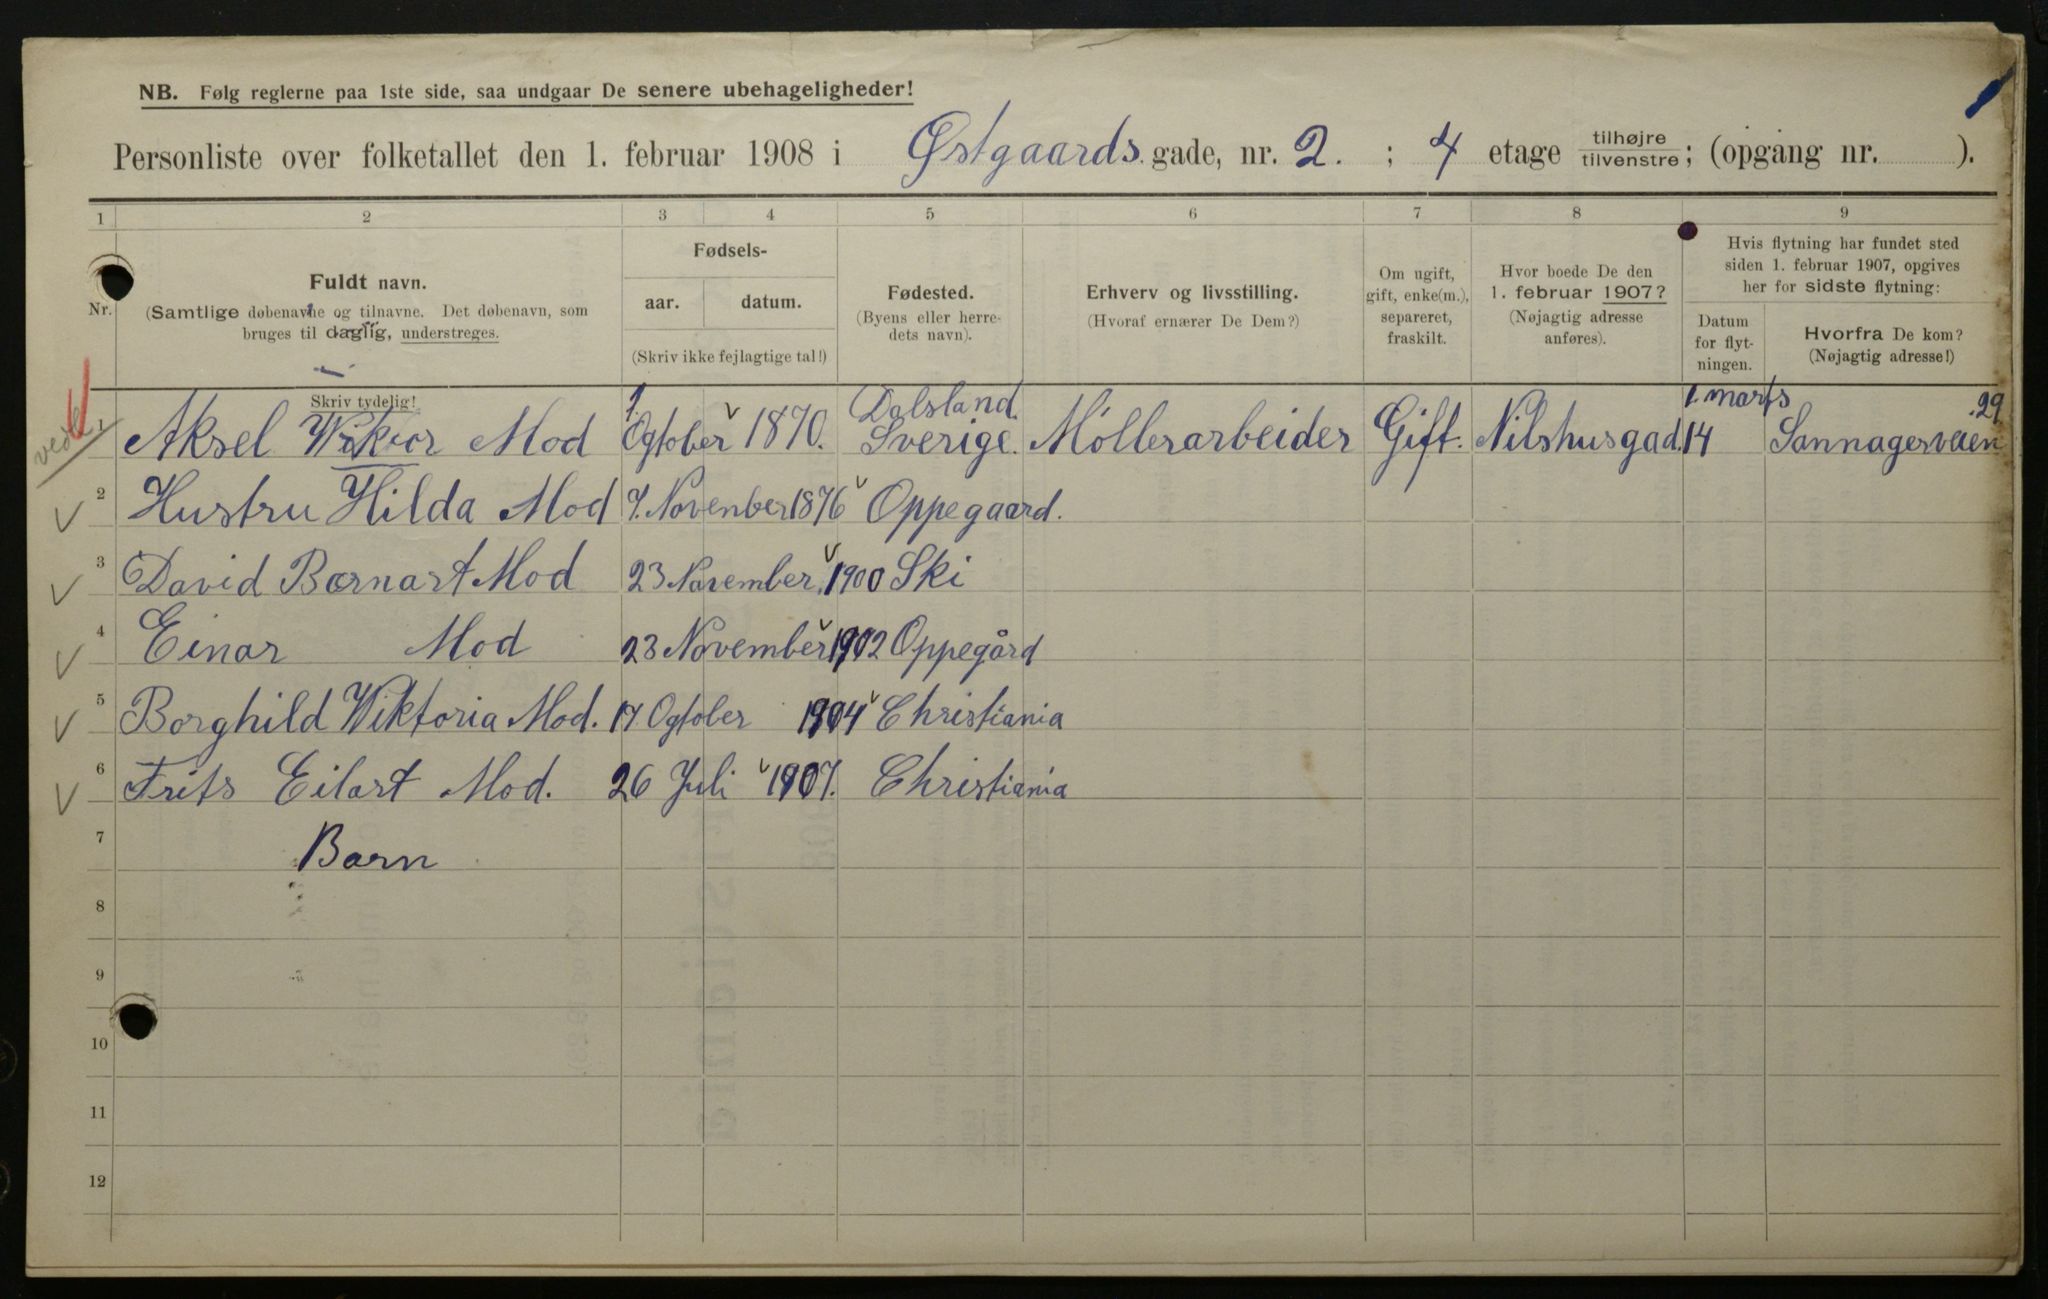 NB. Følg reglerne paa 1ste side, saa undgaar De senere ubehageligheder!
Personliste over folketallet den 1. februar 1908 i Østgaards gade, nr. 2. ; 4 etage tilhøjre/tilvenstre; (opgang nr. ).
1 2 3 4 5 6 7 8 9
Nr.
Fuldt navn.
(Samtlige døbenavne og tilnavne. Det døbenavn, som
bruges til daglig, understreges.
Skriv tydelig!
Fødsels-
aar. datum.
(Skriv ikke fejlagtige tal!)
Fødested.
(Byens eller herre-
dets navn).
Erhverv og livsstilling.
(Hvoraf ernærer De Dem?)
Om ugift,
gift, enke(m.),
separeret,
fraskilt.
Hvor boede De den
1. februar 1907?
(Nøjagtig adresse
anføres).
Hvis flytning har fundet sted
siden 1. februar 1907, opgives
her for sidste flytning:
Datum
for flyt-
ningen.
Hvorfra De kom?
(Nøjagtig adresse!)
1 Aksel Wiktor Mod 1. Ogtober 1870. Dalsland. Sverige. Møllerarbeider Gift. Nilshusgad. 14 1. marts Sannagerveien 29
2 Hustru Hilda Mod 7. November 1876 Oppegaard.
3 David Bernart Mod 23 November 1900 Ski
4 Einar Mod 23 November 1902 Oppegård
5 Borghild Wiktoria Mod. 17. Ogtober 1904 Christiania
6 Frits Eilart Mod. 26 Juli 1907. Christiania
7 Barn
8
9
10
11
12